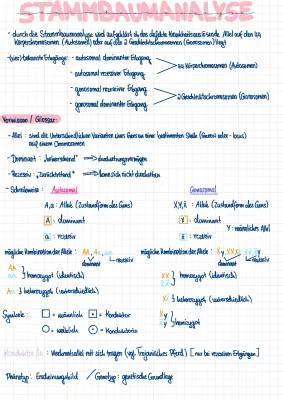 STAMMBAUMANALYSE
- durch die Stammbaumanalyse wird aufgeklärt ob das defekte Krankheitsauslösende Allel auf den 44
Körperchromosomen (Autosomen) oder auf die 2 Geschlechtschromosomen (Gonosomen) liegt
- (vier) bekannte Erbgänge: - autosomal dominanter Erbgang
- autosomal rezessiver Erbgang
44 Körperchromosomen (Autosomen)
- gonosomal rezessiver Erbgang
- gonosomal dominanter Erbgang
2 Geschlechtschromosomen (Gonosomen)
Vorwissen / Glossar:
- Allel: sind die unterschiedlichen Varianten eines Gens an einer bestimmten Stelle (Genort oder -locus)
auf einem Chromosomen
- Dominant: „beherrschend" ⟹ durchsetzungsvermögen
- Rezessiv: „zurücktretend" ⟹ kann sich nicht durchsetzen
- Schreibweise: Autosomal Gonosomal
A, a: Allele (Zustandsform des Gens) X, Y, x: Allele (Zustandsform des Gens)
A: dominant X: dominant
Y: männliches Allel
a: rezessiv x: rezessiv
mögliche Kombination der Allele: AA, Aa, aa mögliche Kombination der Allele:
dominant rezessiv dominant rezessiv
AA
aa } homozygot (identisch) XX } homozygot (identisch)
Aa } heterozygot (unterschiedlich) } heterozygot (unterschiedlich)
Symbole: □ = männlich = Konduktor } hemizygot
○ = weiblich = Konduktorin
Konduktor/in: Merkmalsallel mit sich tragen (vgl. Trojanisches Pferd) [nur bei rezessiven Erbgängen]
Phänotyp: Erscheinungsbild / Genotyp: genetische Grundlage